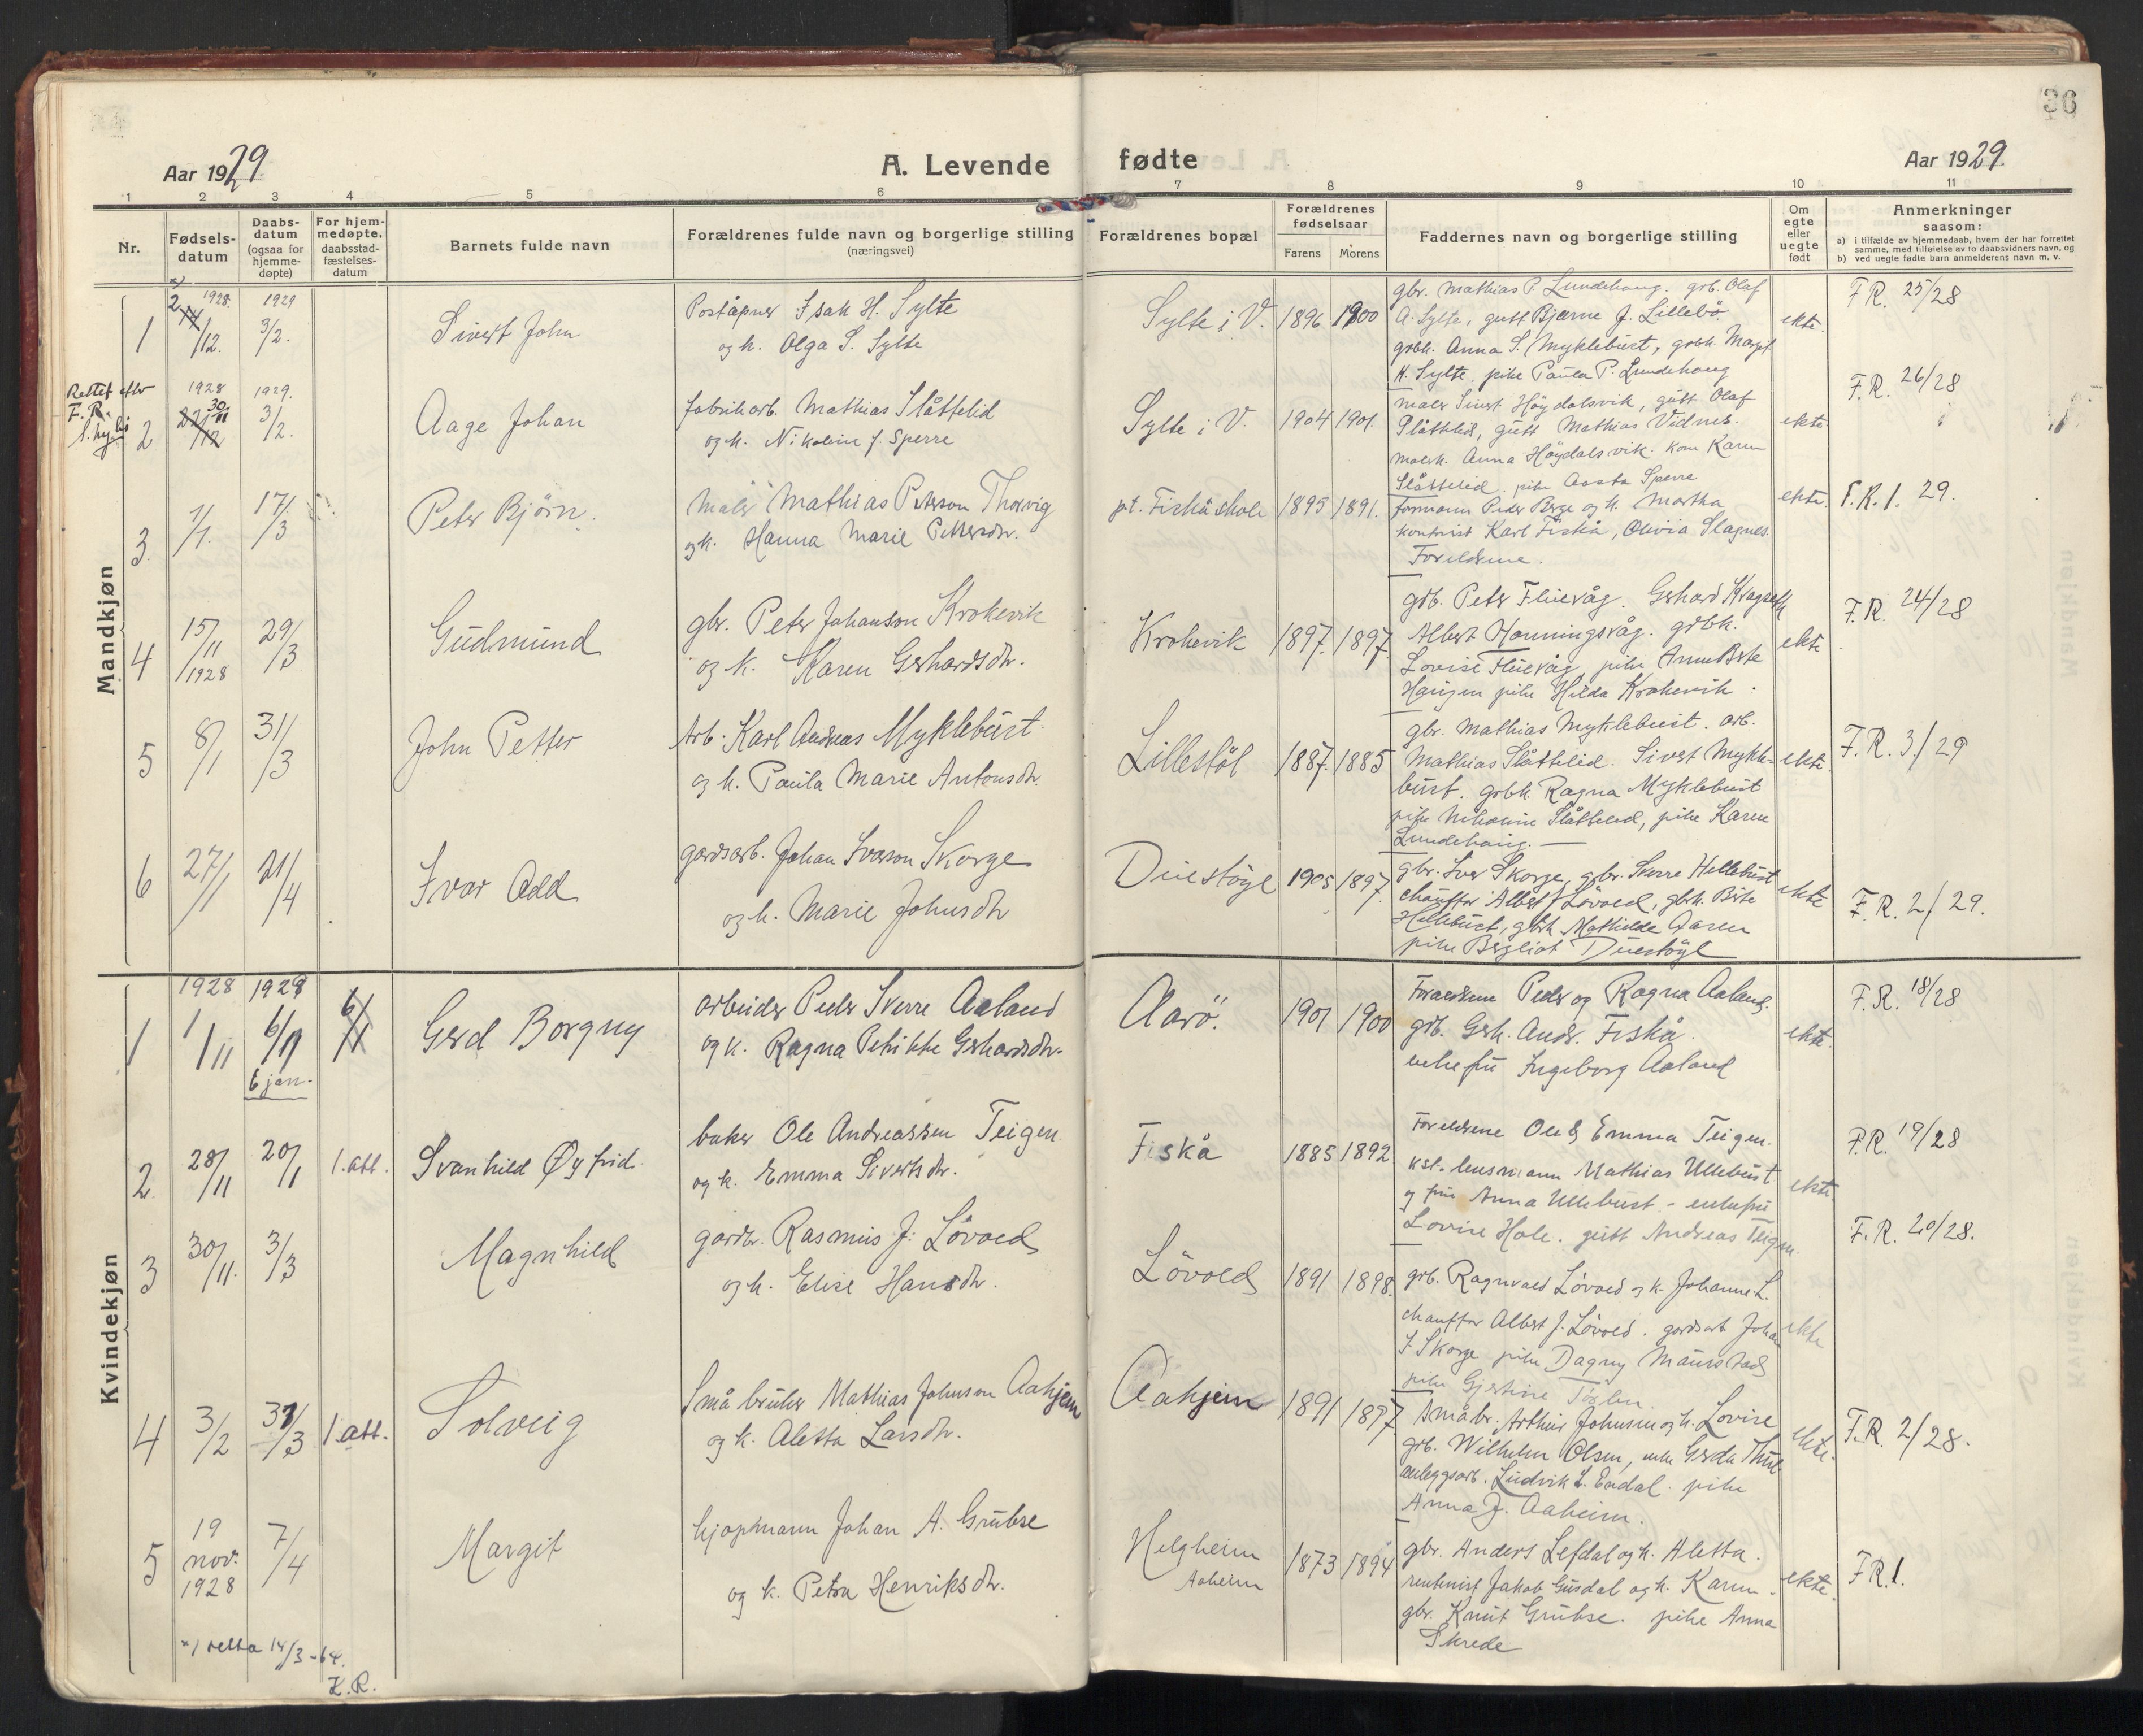 36
Aar 1929.
A. Levende fødte
Aar 1929.
1 2 3 4 5 6 7 8 9 10 11
Nr.
Fødsels-datum
Daabs-datum (ogsaa for hjemme-døpte)
For hjem-medøpte, daabsstad-fæstelses-datum
Barnets fulde navn
Forældrenes fulde navn og borgerlige stilling (næringsvei)
Forældrenes bopæl
Forældrenes fødselsaar
Farens Morens
Faddernes navn og borgerlige stilling
Om egte eller uegte født
Anmerkninger saasom:
a) i tilfælde av hjemmedaab, hvem der har forrettet samme, med tilføielse av to daabsvidners navn, og
b) ved uegte fødte barn anmelderens navn m. v.
Mandkjøn
1
x) 2 14/12. 1928.
1929 3/2.
Sivert John
Poståpner Isak H. Sylte
og k. Olga S. Sylte
Sylte i V. 1896 1900
gbr. Mathias P. Lundehaug. grb. Olaf
A. Sylte, gutt Bjarne J. Lillebö.
grbk. Anna S. Myklebust, grbk. Margit
H. Sylte, pike Paula P. Lundehaug
ekte.
F.R. 25/28
Rettet efter
F.R.
2
1928 30/11 22/12
1929. 3/2.
Aage Johan
fabrikarb. Mathias Slåttelid
og k. Nikoline J. Sperre
Sylte i V. 1904 1901.
maler Sivert Höydalsvik, gutt Olaf
Slåttelid, gutt Mathias Vidnes.
malerk. Anna Höydalsvik. kone Karen
Slåttelid. pike Aasta Sperre
ekte
F.R. 26/28
3.
1/1.
17/3
Peter Bjørn.
Maler Mathias Peterson Thorvig
og k. Hanna Marie Pettersdtr.
pt. Fiskåskole 1895 1891.
formann Peder Berge og k. Martha
kontorist Karl Fiskå, Olivia Slagnes.
Foreldrene.
ekte.
F.R. 1. 29.
4
15/11 1928
29/3
Gudmund
gbr. Peter Johanson Krokevik
og k. Karen Gerhardsdtr.
Krokevik 1897. 1897
grb. Peter Fluevåg. Gerhard Kragseth
Albert Honningsvåg. grbk.
Lovise Fluevåg, pike Anne Berte
Haugen pike Hilda Krokevik.
ekte
F.R. 24/28
5
8/1
31/3
John Petter
Arb. Karl Andreas Myklebust.
og k. Paula Marie Antonsdtr.
Lillestöl 1887. 1885
gbr. Mathias Myklebust. arb.
Mathias Slåttelid. Sivert Mykle-
bust. grbk. Ragna Myklebust
pike Nikoline Slåttelid, pike Karen
Lundehaug.
ekte.
F.R. 3/29
6
27/1
21/4
Ivar Odd
gardsarb. Johan Ivarson Skorge
og k. Marie Johnsdtr
Duestöyl 1905 1897.
gbr. Iver Skorge, gbr. Sverre Hellebust
chauffør Albert J. Lövoll, gbrk. Berte
Hellebust, gbrk. Mathilde Aaren
pike Bergliot Duestöyl
ekte
F.R. 2/29.
Kvindekjøn
1
1928 1/11
1929 6/1
6 jan.
6/1
Gerd Borgny
arbeider Peder Sverre Aaland
og k. Ragna Petrikke Gerhardsdtr.
Aarö. 1901 1900
Foreldrene Peder og Ragna Aaland.
grb. Gerh. Andr. Fiskå.
enkefru Ingeborg Aaland
ekte.
F.R. 18/28
2.
28/11
20/1
1. att.
Svanhild Øyfrid
baker Ole Andreassen Teigen
og k. Emma Sivertsdtr.
Fiskå 1885 1892
Foreldrene Ole & Emma Teigen.
kst. lensmann Mathias Ullebust
og fru Anna Ullebust - enkefru
Lovise Hole. gutt Andreas Teigen.
ekte.
F.R. 19/28
3
30/11.
3/3
Magnhild
gardbr. Rasmus J. Lövold
og k. Elise Hansdtr.
Lövold 1891 1898.
grb. Ragnvald Lövold og k. Johanne L.
chauffør Albert J. Lövold. gardsarb Johan
I. Skorge pike Dagny Maurstad
pike Gjertine
ekte
F.R. 20/28.
4
3/2
31/3
1. att.
Solveig
Småbruker Mathias Johnson Aahjem
og k. Aletta Larsdtr.
Aahjem 1891 1897
Småbr. Arthur Johnsen og k. Lovise
grb. Wilhelm Olsen, enke Gerda
anleggsarb. Ludvik L. Endal. pike
Anna J. Aaheim.
ekte.
F.R. 2/28.
5
19 nov. 1928
7/4
Margit
kjøpmann Johan A. Grubse
og k. Petra Henriksdtr.
Helgheim
Aaheim
1873 1894
gbr. Anders Lefdal og k. Aletta.
rentenist Jakob Gusdal og k. Karen.
gbr. Knut Grubse. pike Anna
Skrede
ekte.
F.R. 1.
x) retta 14/3-64.
K.R.